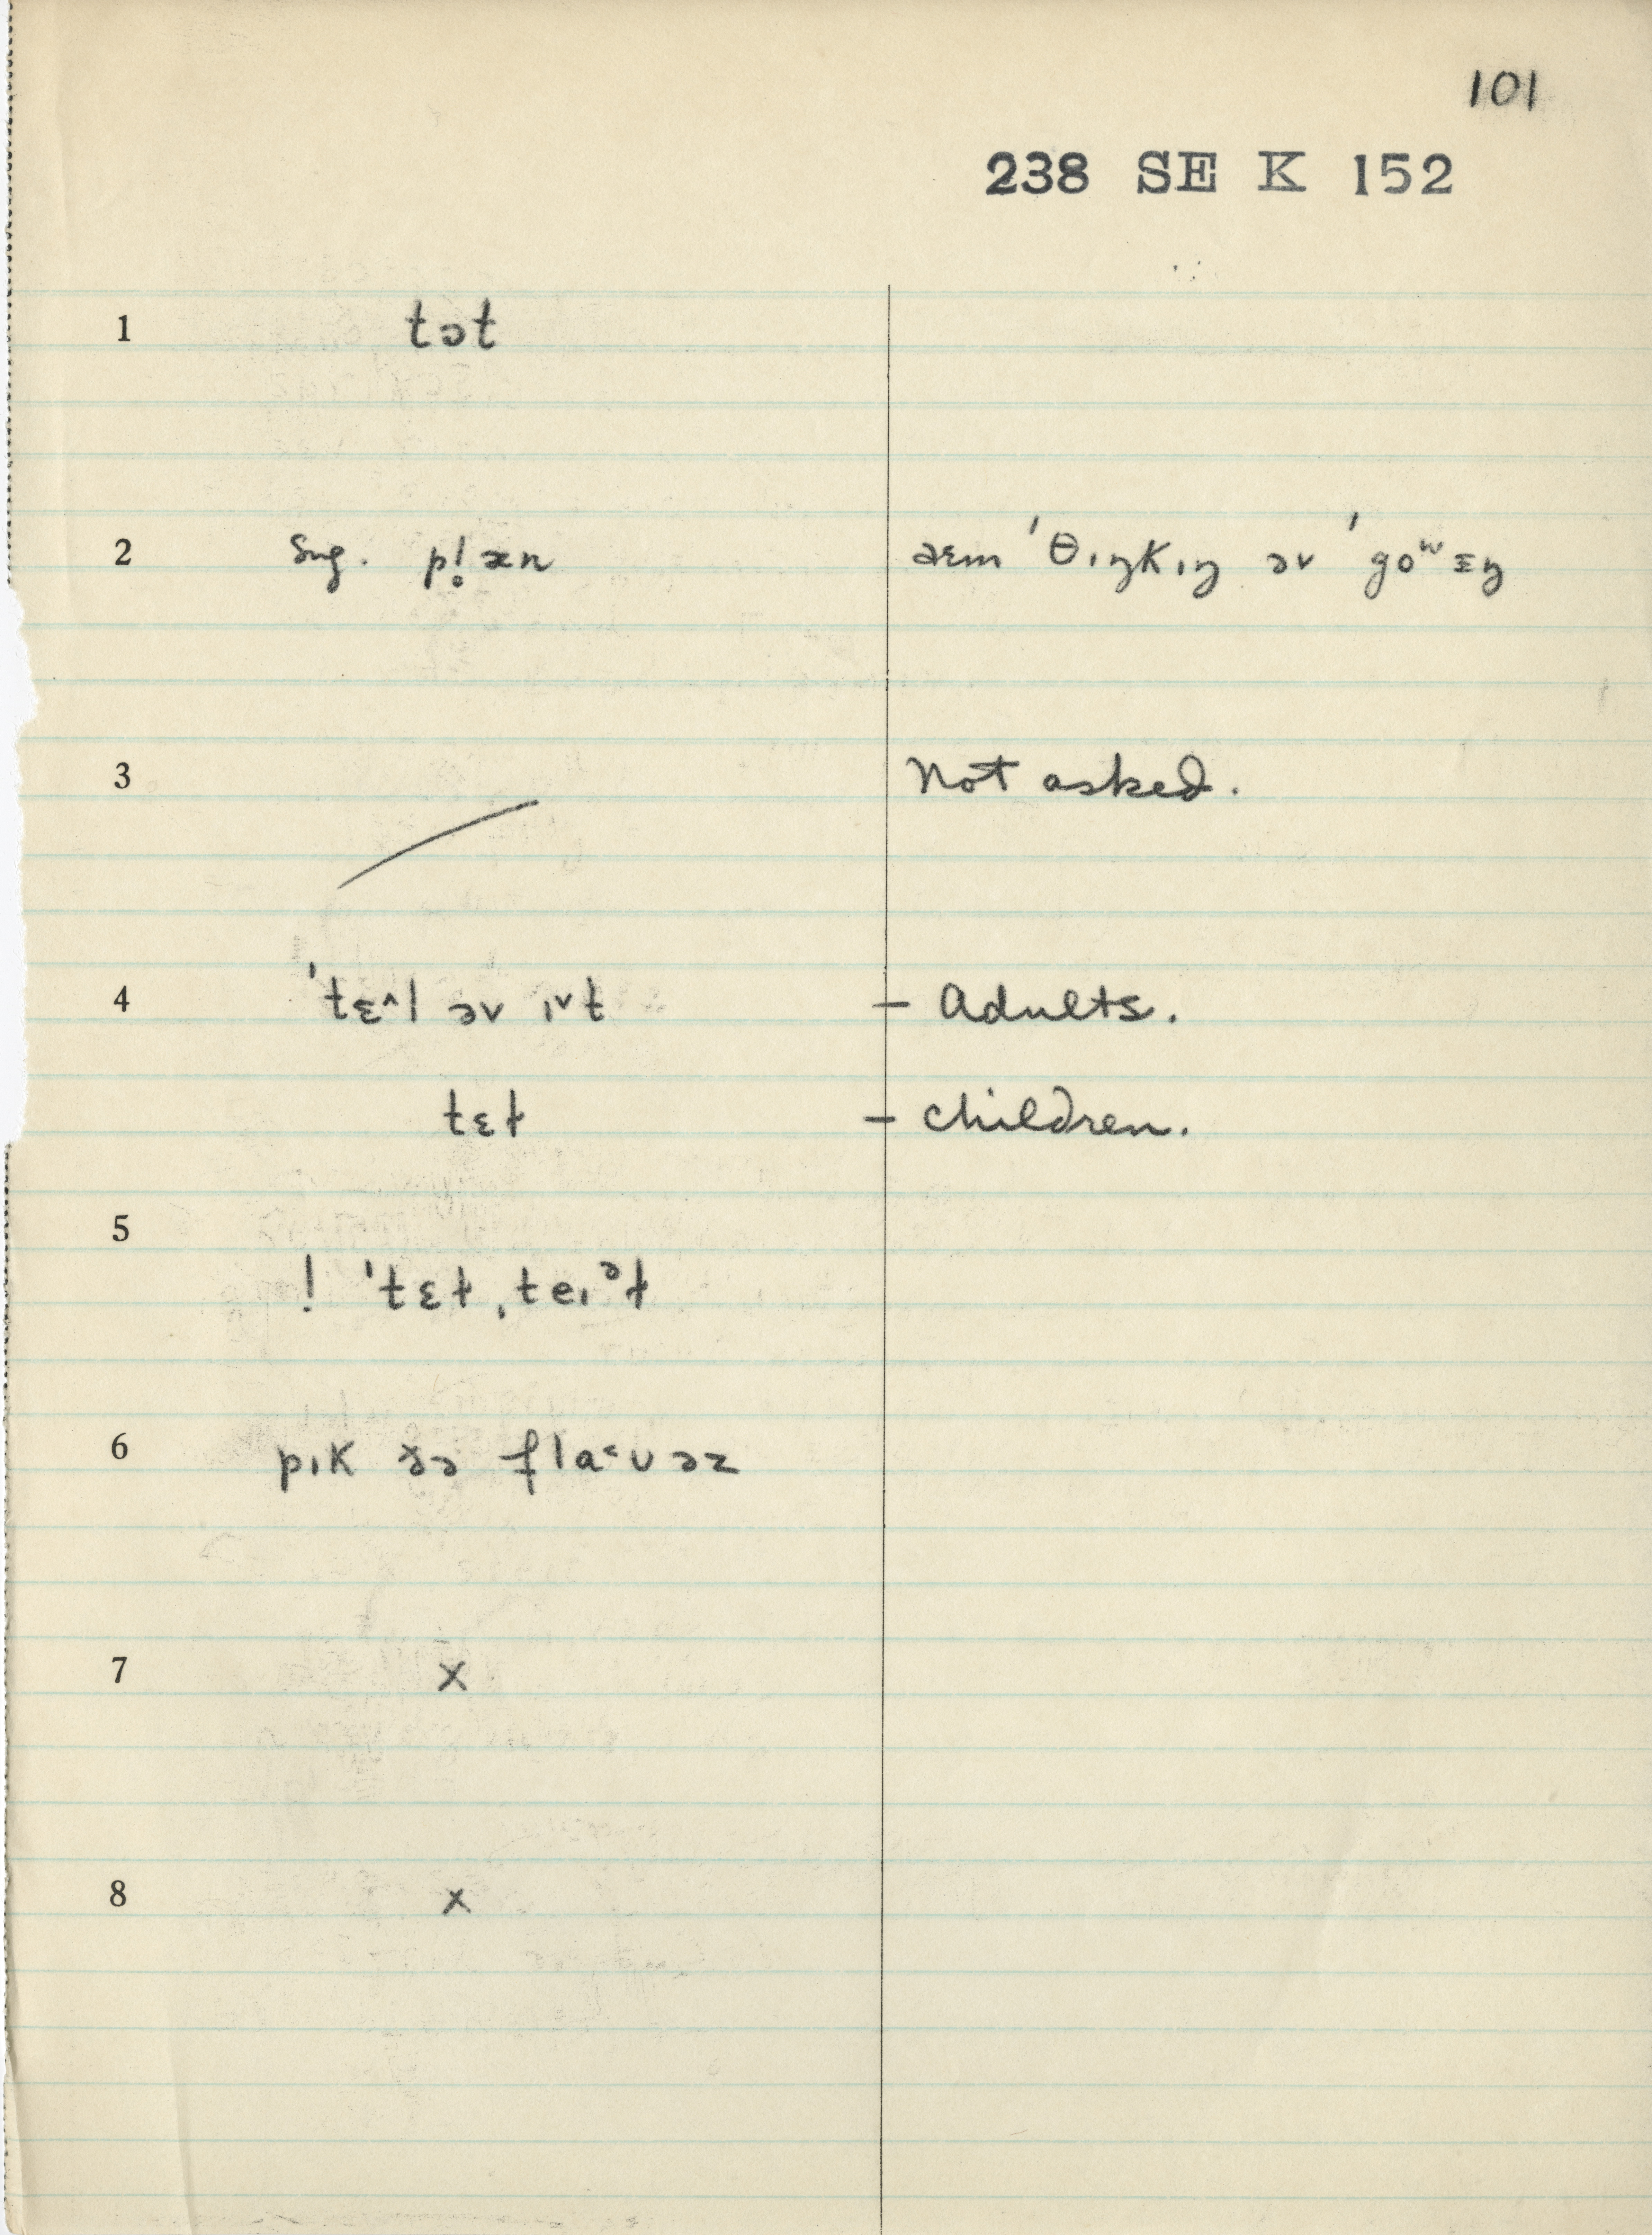 101
238 SE K 152
1 tɔt
2 Sug. p!æn aɛm ˈθɪŋkɪŋ əv ˈgoʷɪŋ
3 Not asked.
4 ˈtɛ^l əv ɪᵛt – Adults.
tɛt – children.
5 ! ˈtɛt ˌteɪᵊt
6 pɪk ðə fla˂ʊəz
7 x
8 x